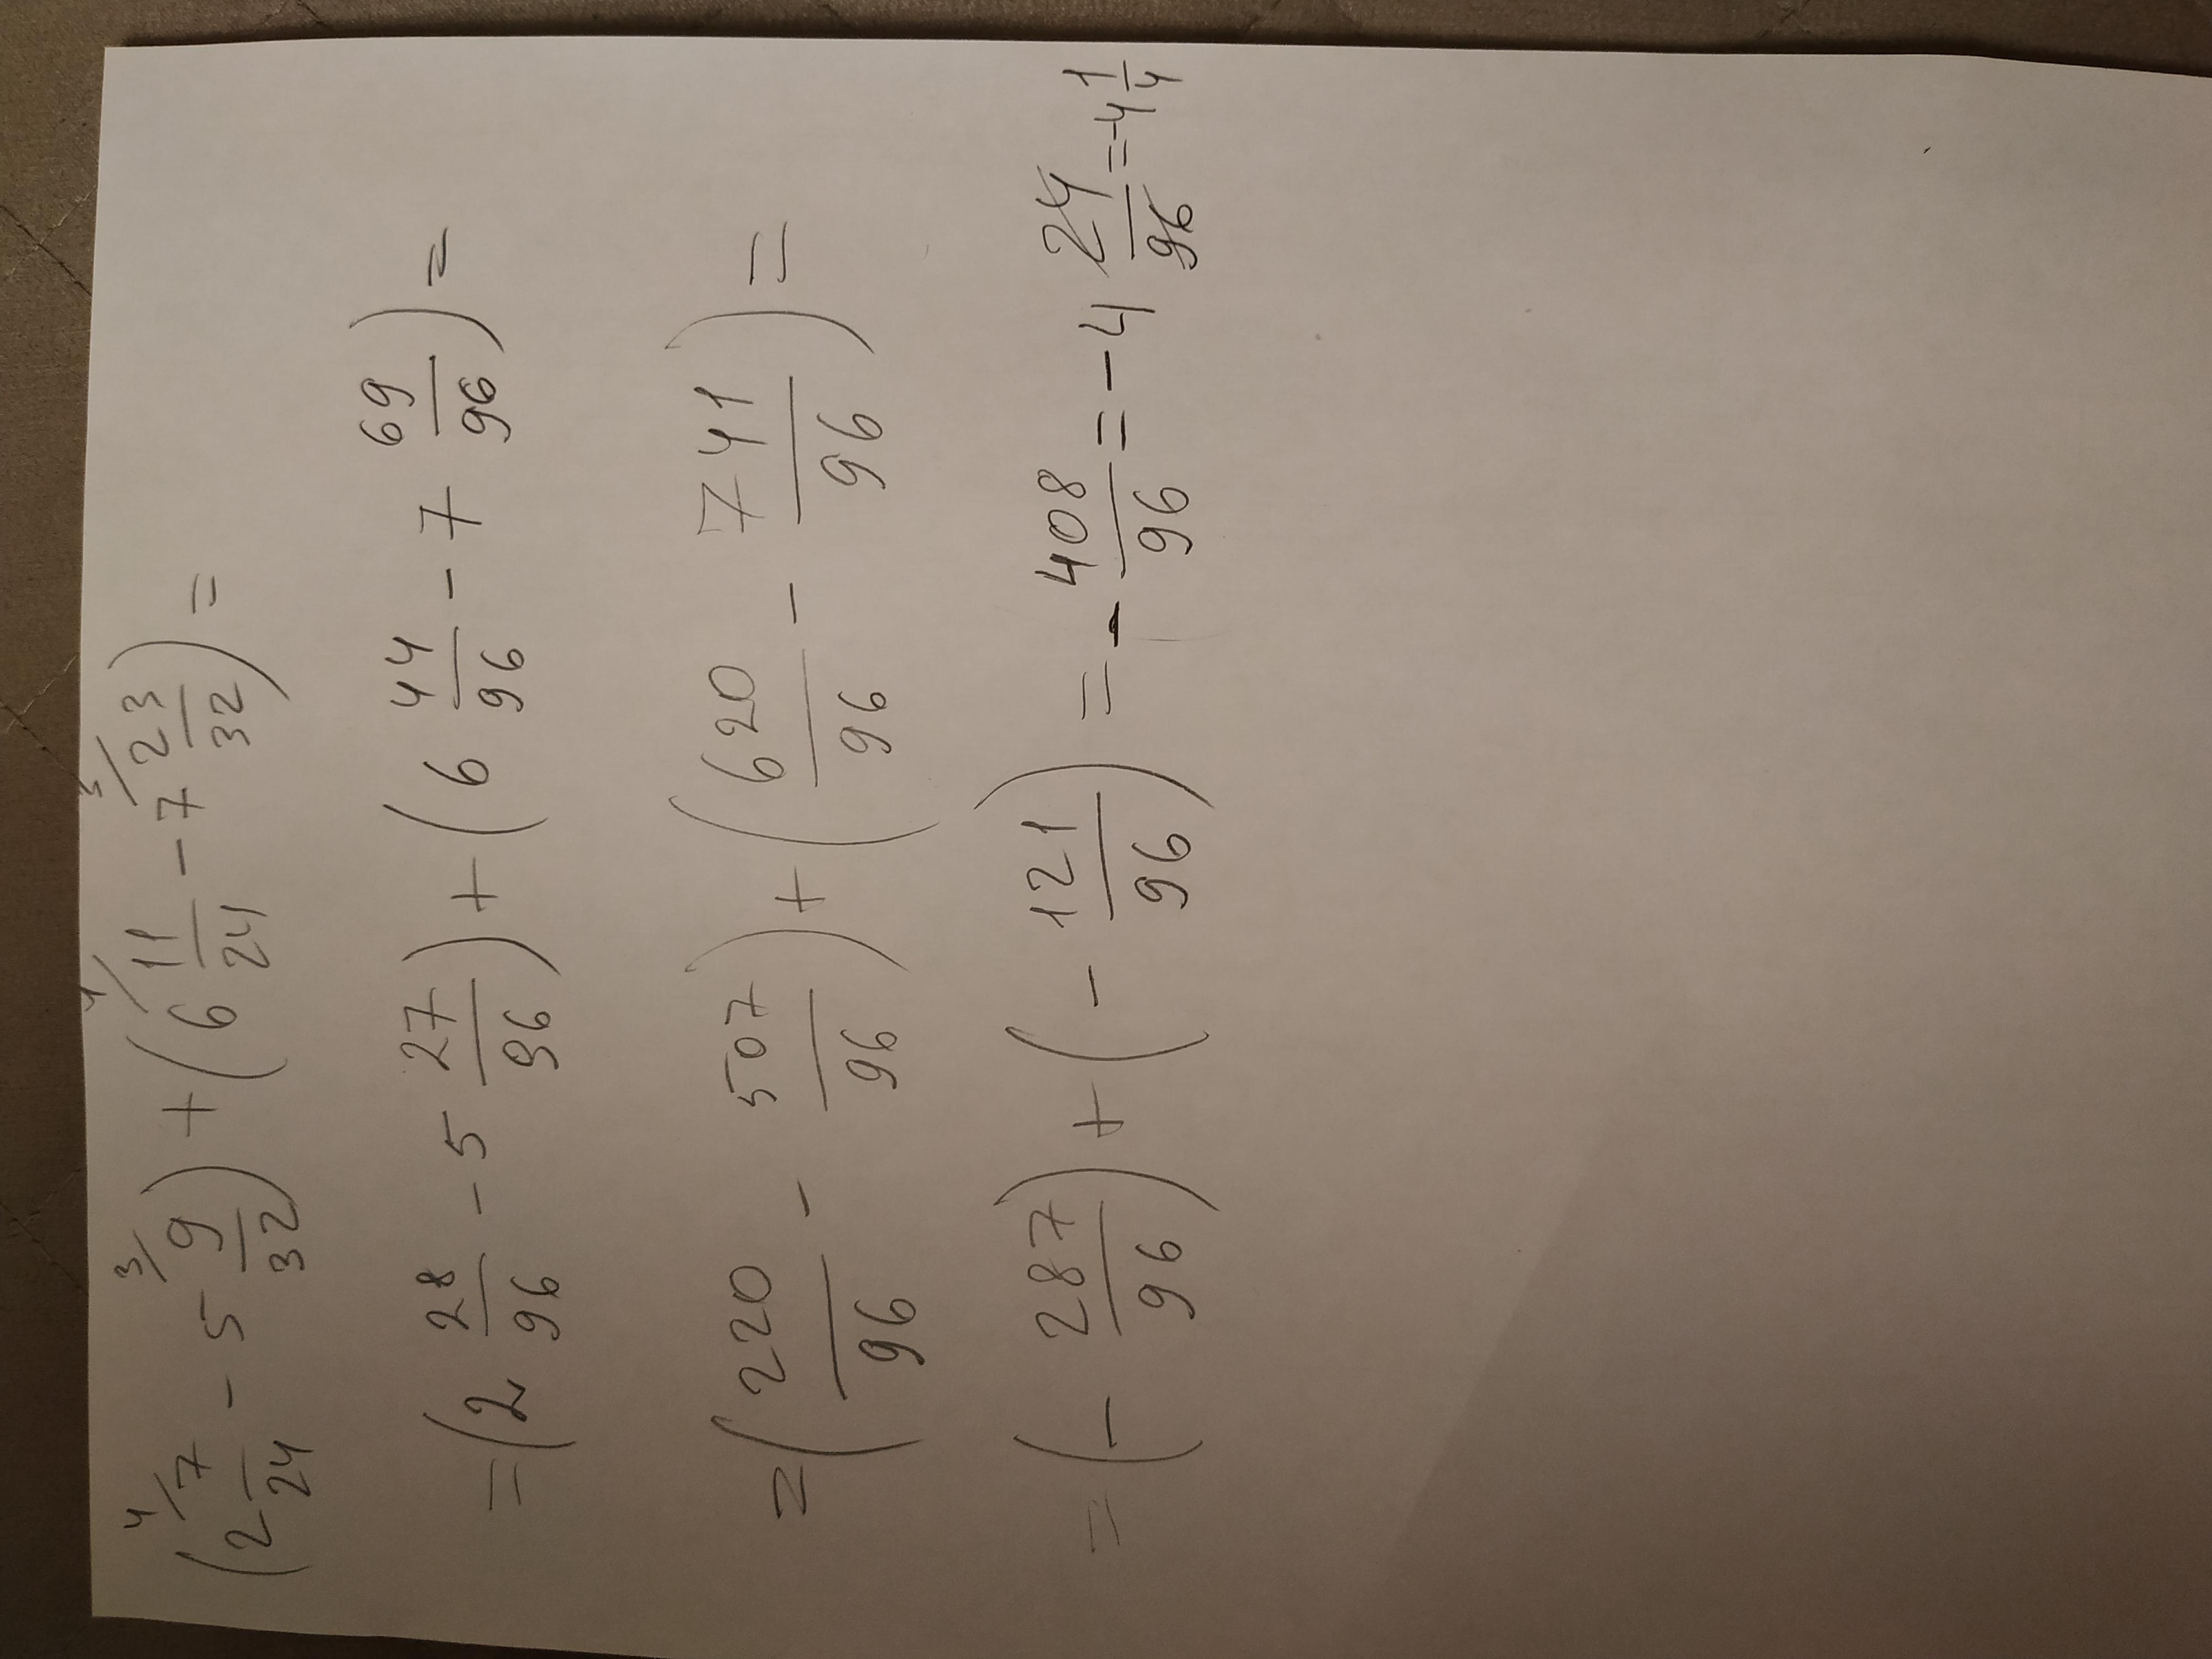 (2 4/7/24 - 5 3/9/32) + (6 4/11/24 - 7 3/23/32) =
= (2 28/96 - 5 27/96) + (6 44/96 - 7 69/96) =
= (220/96 - 507/96) + (620/96 - 741/96) =
= (- 287/96) + (- 121/96) = - 408/96 = - 4 24/96 = -4 1/4